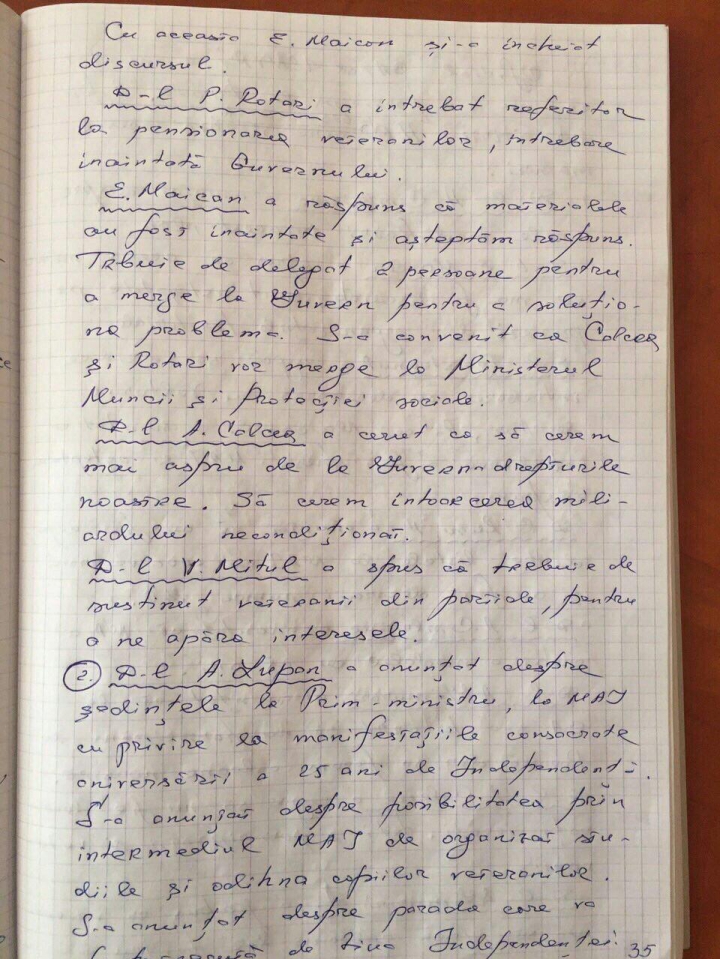 Cu aceasta E. Maican și-a încheiat
discursul.
D-l P. Rotari a întrebat referitor
la pensionarea veteranilor, întrebare
înaintată Guvernului.
E. Maican a răspuns că materialele
au fost înaintate și așteptăm răspuns.
Trebuie de delegat 2 persoane pentru
a merge la Guvern pentru a soluțio-
na problema. S-a convenit ca Colcea
și Rotari vor merge la Ministerul
Muncii și Protecției sociale.
D-l A. Colcea a cerut ca să cerem
mai aspru de la Guvern drepturile
noastre. Să cerem întoarcerea mili-
ardului necondiționat.
D-l V. Mitul a spus că trebuie de
susținut veteranii din partide, pentru
a ne apăra interesele.
2. D-l A. Lupan a anunțat despre
ședințele la Prim-ministru, la MAI
cu privire la manifestațiile consacrate
aniversării a 25 ani de Independență.
S-a anunțat despre posibilitatea prin
intermediul MAI de organizat stu-
diile și odihna copiilor veteranilor.
S-a anunțat despre parada care va
de Ziua Independenței.
35